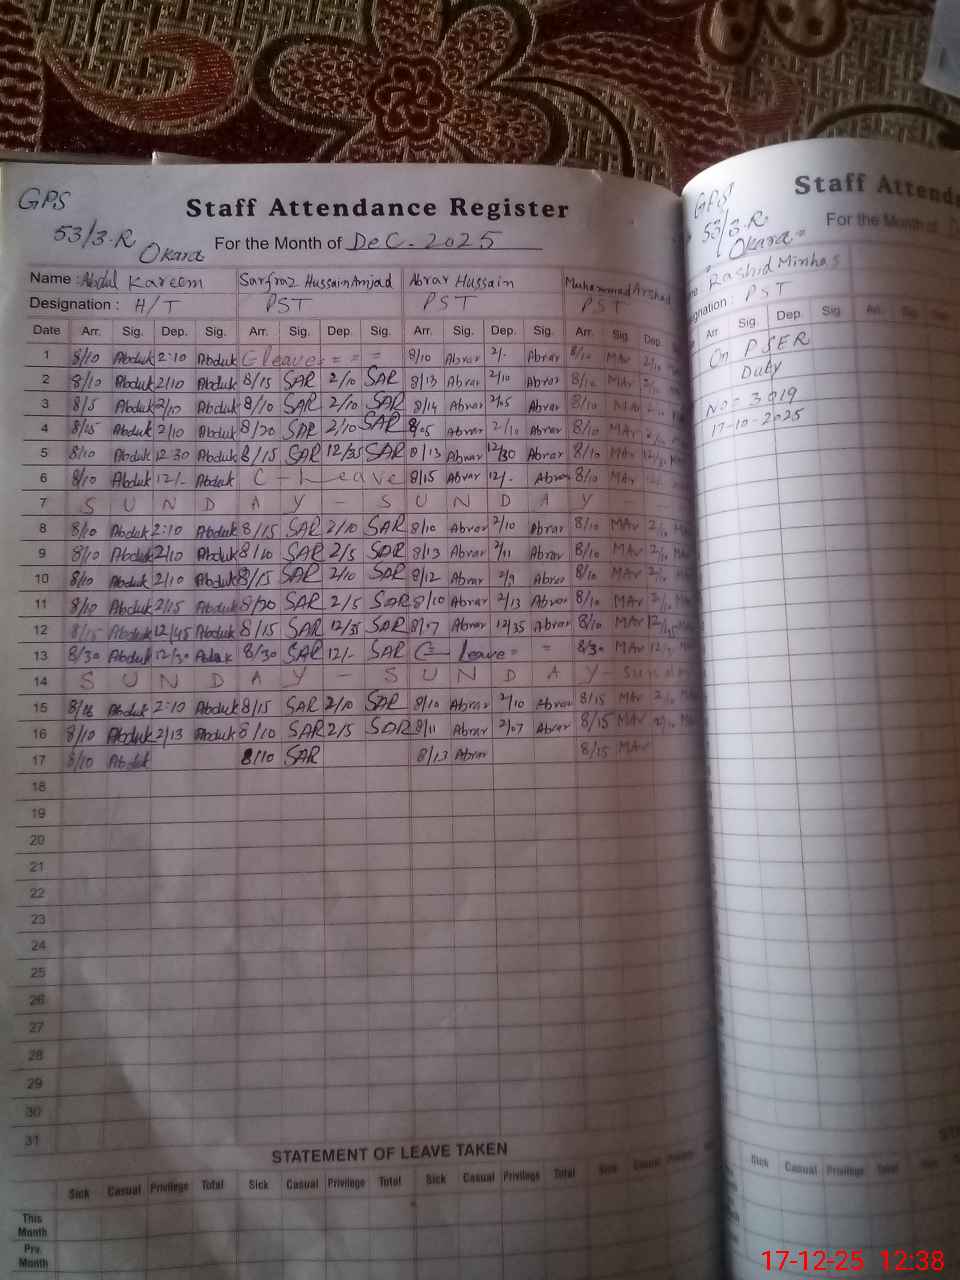 GPS
53/3.R
Okara
Staff Attendance Register
For the Month of Dec. 2025
Name : Abdul Kareem Sarfraz Hussain Amjad Abrar Hussain Muhammad Arshad
Designation : H/T PST PST PST
Date Arr. Sig. Dep. Sig. Arr. Sig. Dep. Sig. Arr. Sig. Dep. Sig. Arr. Sig. Dep.
1 8/10 Abduk 2:10 Abduk C leave = = = 8/10 Abrar 2/- Abrar 8/10 MAr 2/10
2 8/10 Abduk 2/10 Abduk 8/15 SAR 2/10 SAR 8/13 Abrar 2/10 Abrar 8/10 MAr 2/10
3 8/5 Abduk 2/10 Abduk 8/10 SAR 2/10 SAR 8/14 Abrar 2/05 Abrar 8/10 MAr
4 8/15 Abduk 2/10 Abduk 8/20 SAR 2/10 SAR 8/05 Abrar 2/10 Abrar 8/10 MAr 2/10
5 8/10 Abduk 12:30 Abduk 8/15 SAR 12/35 SAR 8/13 Abrar 12/30 Abrar 8/10 MAr
6 8/10 Abduk 12/- Abduk C - Leave 8/15 Abrar 12/- Abrar 8/10 MAr
7 S U N D A Y - S U N D A Y -
8 8/10 Abduk 2:10 Abduk 8/15 SAR 2/10 SAR 8/10 Abrar 2/10 Abrar 8/10 MAr 2/10
9 8/10 Abduk 2/10 Abduk 8/10 SAR 2/5 SAR 8/13 Abrar 2/11 Abrar 8/10 MAr 2/10
10 8/10 Abduk 2/10 Abduk 8/15 SAR 2/10 SAR 8/12 Abrar 2/9 Abrar 8/10 MAr 2/10
11 8/10 Abduk 2/15 Abduk 8/20 SAR 2/5 SAR 8/10 Abrar 2/13 Abrar 8/10 MAr 2/10
12 8/15 Abduk 12/45 Abduk 8/15 SAR 12/35 SAR 8/07 Abrar 12/35 Abrar 8/10 MAr
13 8/30 Abduk 12/30 Abduk 8/30 SAR 12/- SAR C- Leave = = 8/30 MAr
14 S U N D A Y - S U N D A Y - Sunday
15 8/16 Abduk 2:10 Abduk 8/15 SAR 2/10 SAR 8/10 Abrar 2/10 Abrar 8/15 MAr 2/10
16 8/10 Abduk 2/13 Abduk 8/10 SAR 2/5 SAR 8/11 Abrar 2/07 Abrar 8/15 MAr 2/10
17 8/10 Abduk 8/10 SAR 8/13 Abrar 8/15 MAr
18
19
20
21
22
23
24
25
26
27
28
29
30
31
STATEMENT OF LEAVE TAKEN
Sick Casual Privilege Total Sick Casual Privilege Total Sick Casual Privilege Total Sick Casual
This Month
Prv. Month
GPS
53/3.R
Okara =
Staff Attend
For the Month of
Rashid Minhas
PST
Arr. Sig. Dep. Sig. Arr. Sig.
On PSER
Duty
No = 3019
17-10-2025
Sick Casual Privilege Total
17-12-25 12:38